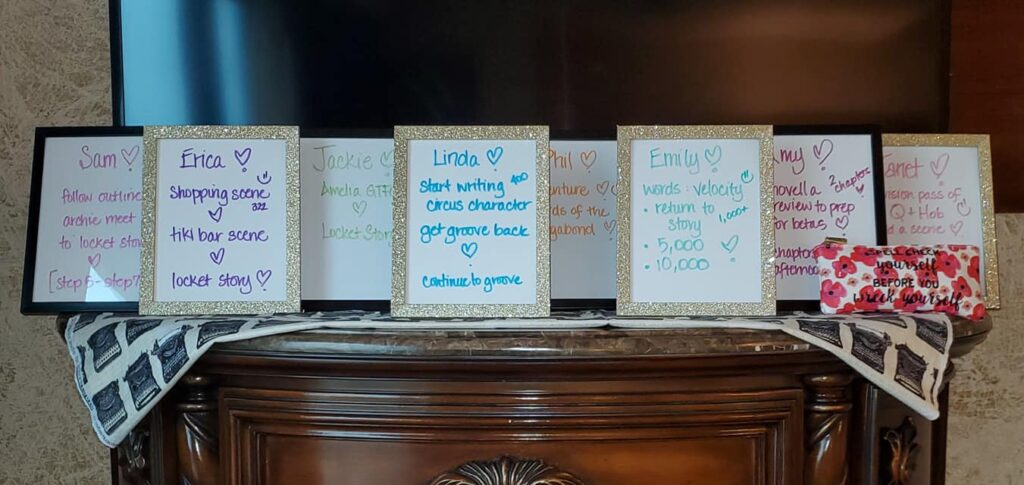 Sam
follow outline
archie meet
to locket story
[step 5-step 7
Erica
shopping scene
322
tiki bar scene
locket story
Jackie
Amelia
Locket Story
Linda
start writing 400
circus character
get groove back
continue to groove
Phil
enture
ds of the
agabond
Emily
words: velocity
• return to
story 1,000+
• 5,000
• 10,000
my
novella 2
chapters
review to prep
for betas
chapters
afternoon
anet
ision pass of
Q+Hob
d a scene
SPELL CHECK
yourself
BEFORE YOU
wreck yourself